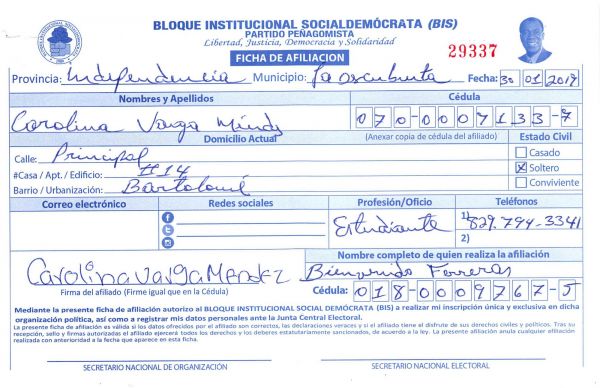 BLOQUE INSTITUCIONAL SOCIALDEMÓCRATA (BIS)
PARTIDO PEÑAGOMISTA
Libertad, Justicia, Democracia y Solidaridad
FICHA DE AFILIACION
29337
Provincia: Independencia Municipio: La Descubierta Fecha: 30 01 2019
Nombres y Apellidos Cédula
Carolina Varga Méndez 070-0007133-7
Domicilio Actual (Anexar copia de cédula del afiliado) Estado Civil
Calle: Principal Casado
#Casa / Apt. / Edificio: #14 Soltero
Barrio / Urbanización: Bartolomé Conviviente
Correo electrónico Redes sociales Profesión/Oficio Teléfonos
Estudiante 1) 829.794-3341
2)
Nombre completo de quien realiza la afiliación
Carolina Varga Mendez Bienvenido Ferreras
Firma del afiliado (Firme igual que en la Cédula) Cédula: 018-0009767-5
Mediante la presente ficha de afiliación autorizo al BLOQUE INSTITUCIONAL SOCIAL DEMÓCRATA (BIS) a realizar mi inscripción única y exclusiva en dicha
organización política, así como a registrar mis datos personales ante la Junta Central Electoral.
La presente ficha de afiliación es válida si los datos ofrecidos por el afiliado son correctos, las declaraciones veraces y si el afiliado tiene el disfrute de sus derechos civiles y políticos. Tras su
recepción, sello y firmas autorizadas el afiliado ejercerá todos los derechos y los deberes estatutariamente sancionados, de acuerdo a la ley. La presente afiliación anula cualquier afiliación
realizada con anterioridad a la fecha que aparece en esta ficha.
SECRETARIO NACIONAL DE ORGANIZACIÓN SECRETARIO NACIONAL ELECTORAL